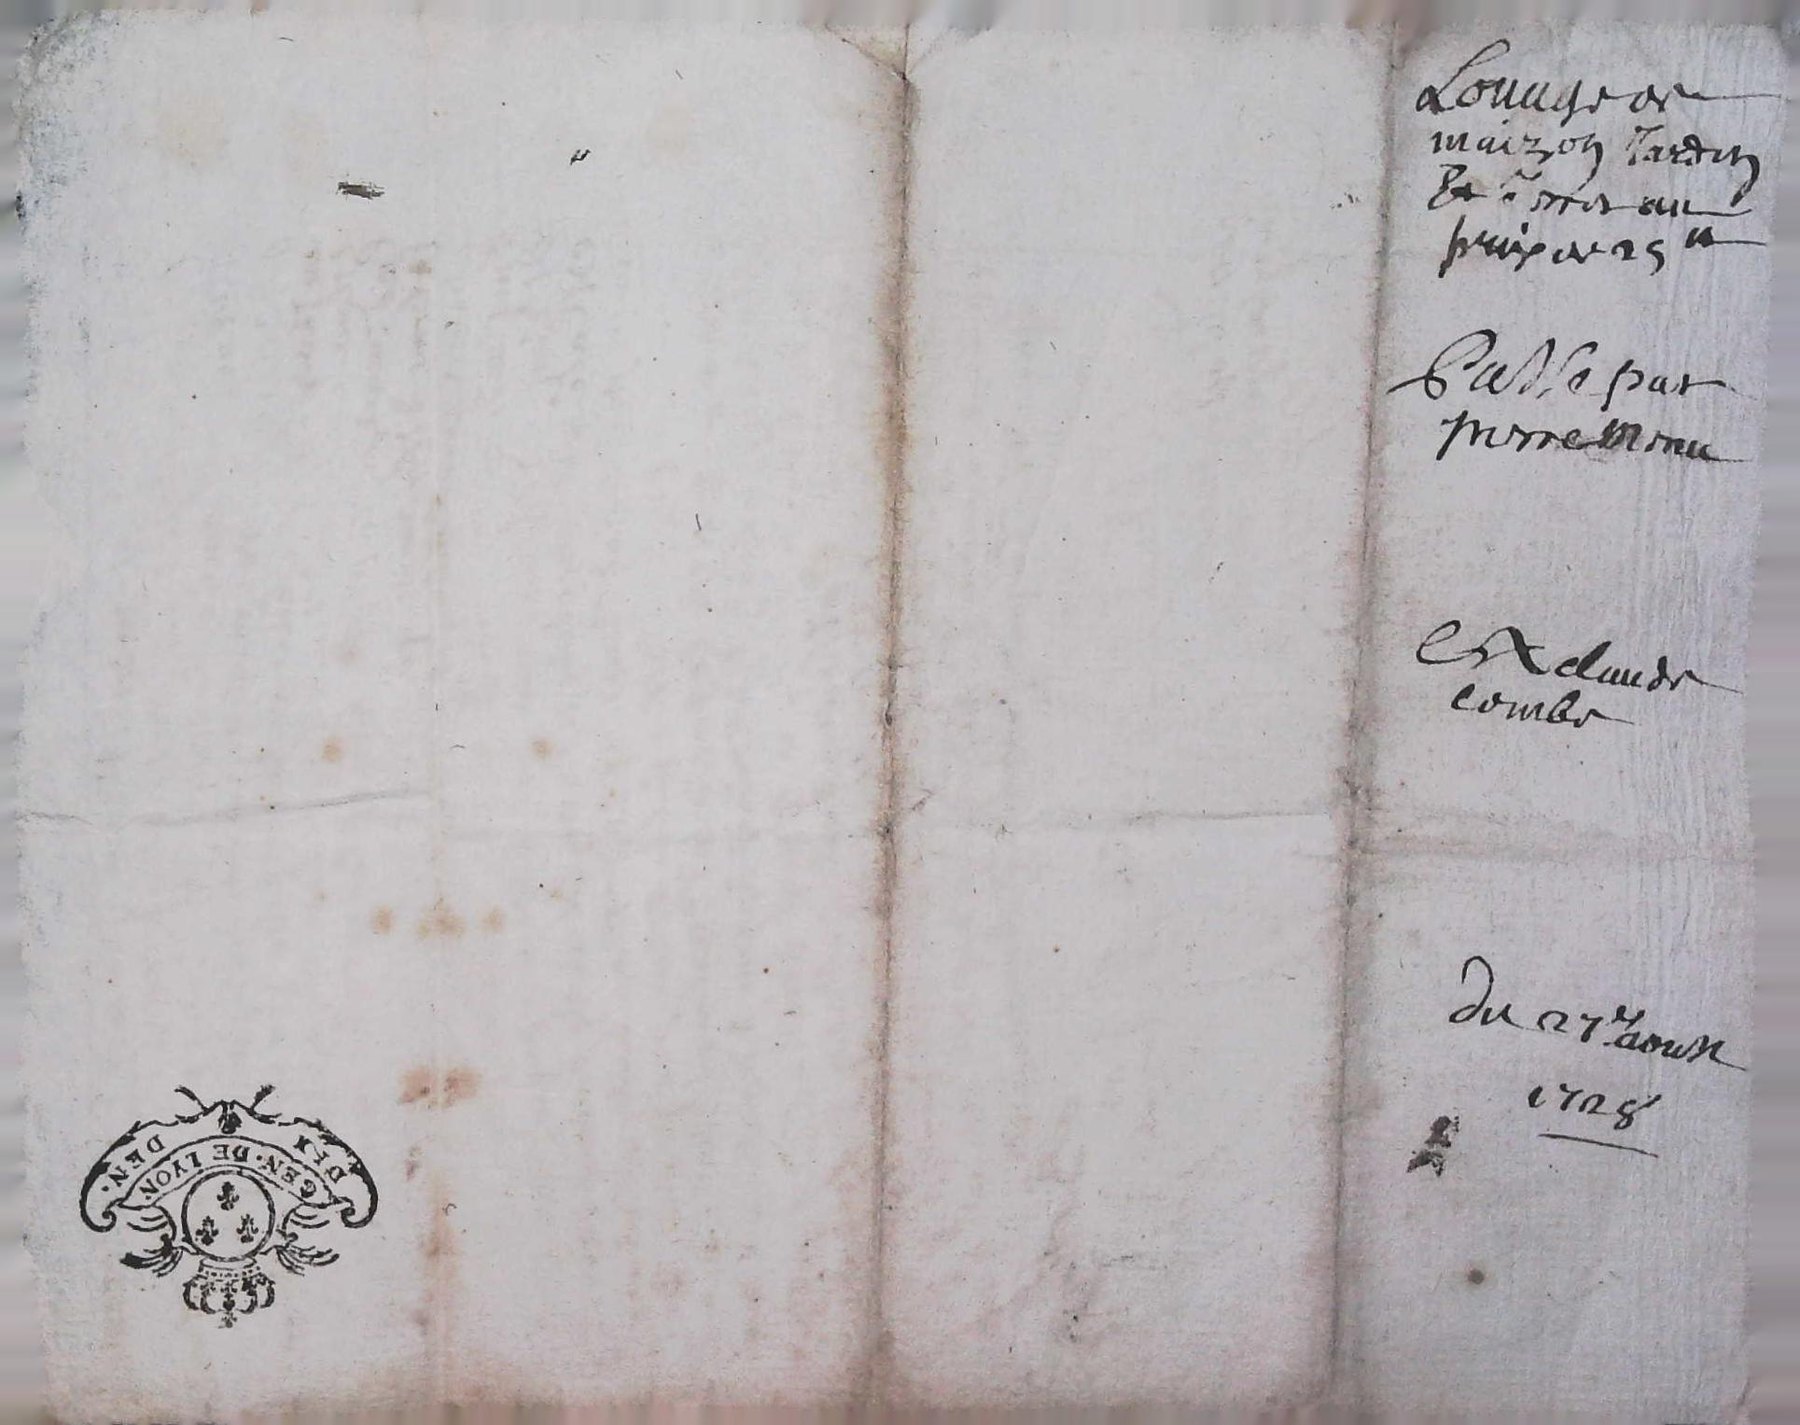 Louage de
maizon Jardin
Et terres au
prix de 25 ᵗᵗ
Passé par
pierre
Et A claude
combe
du 27e aoust
1728
GEN. DE LYON.
DEN.